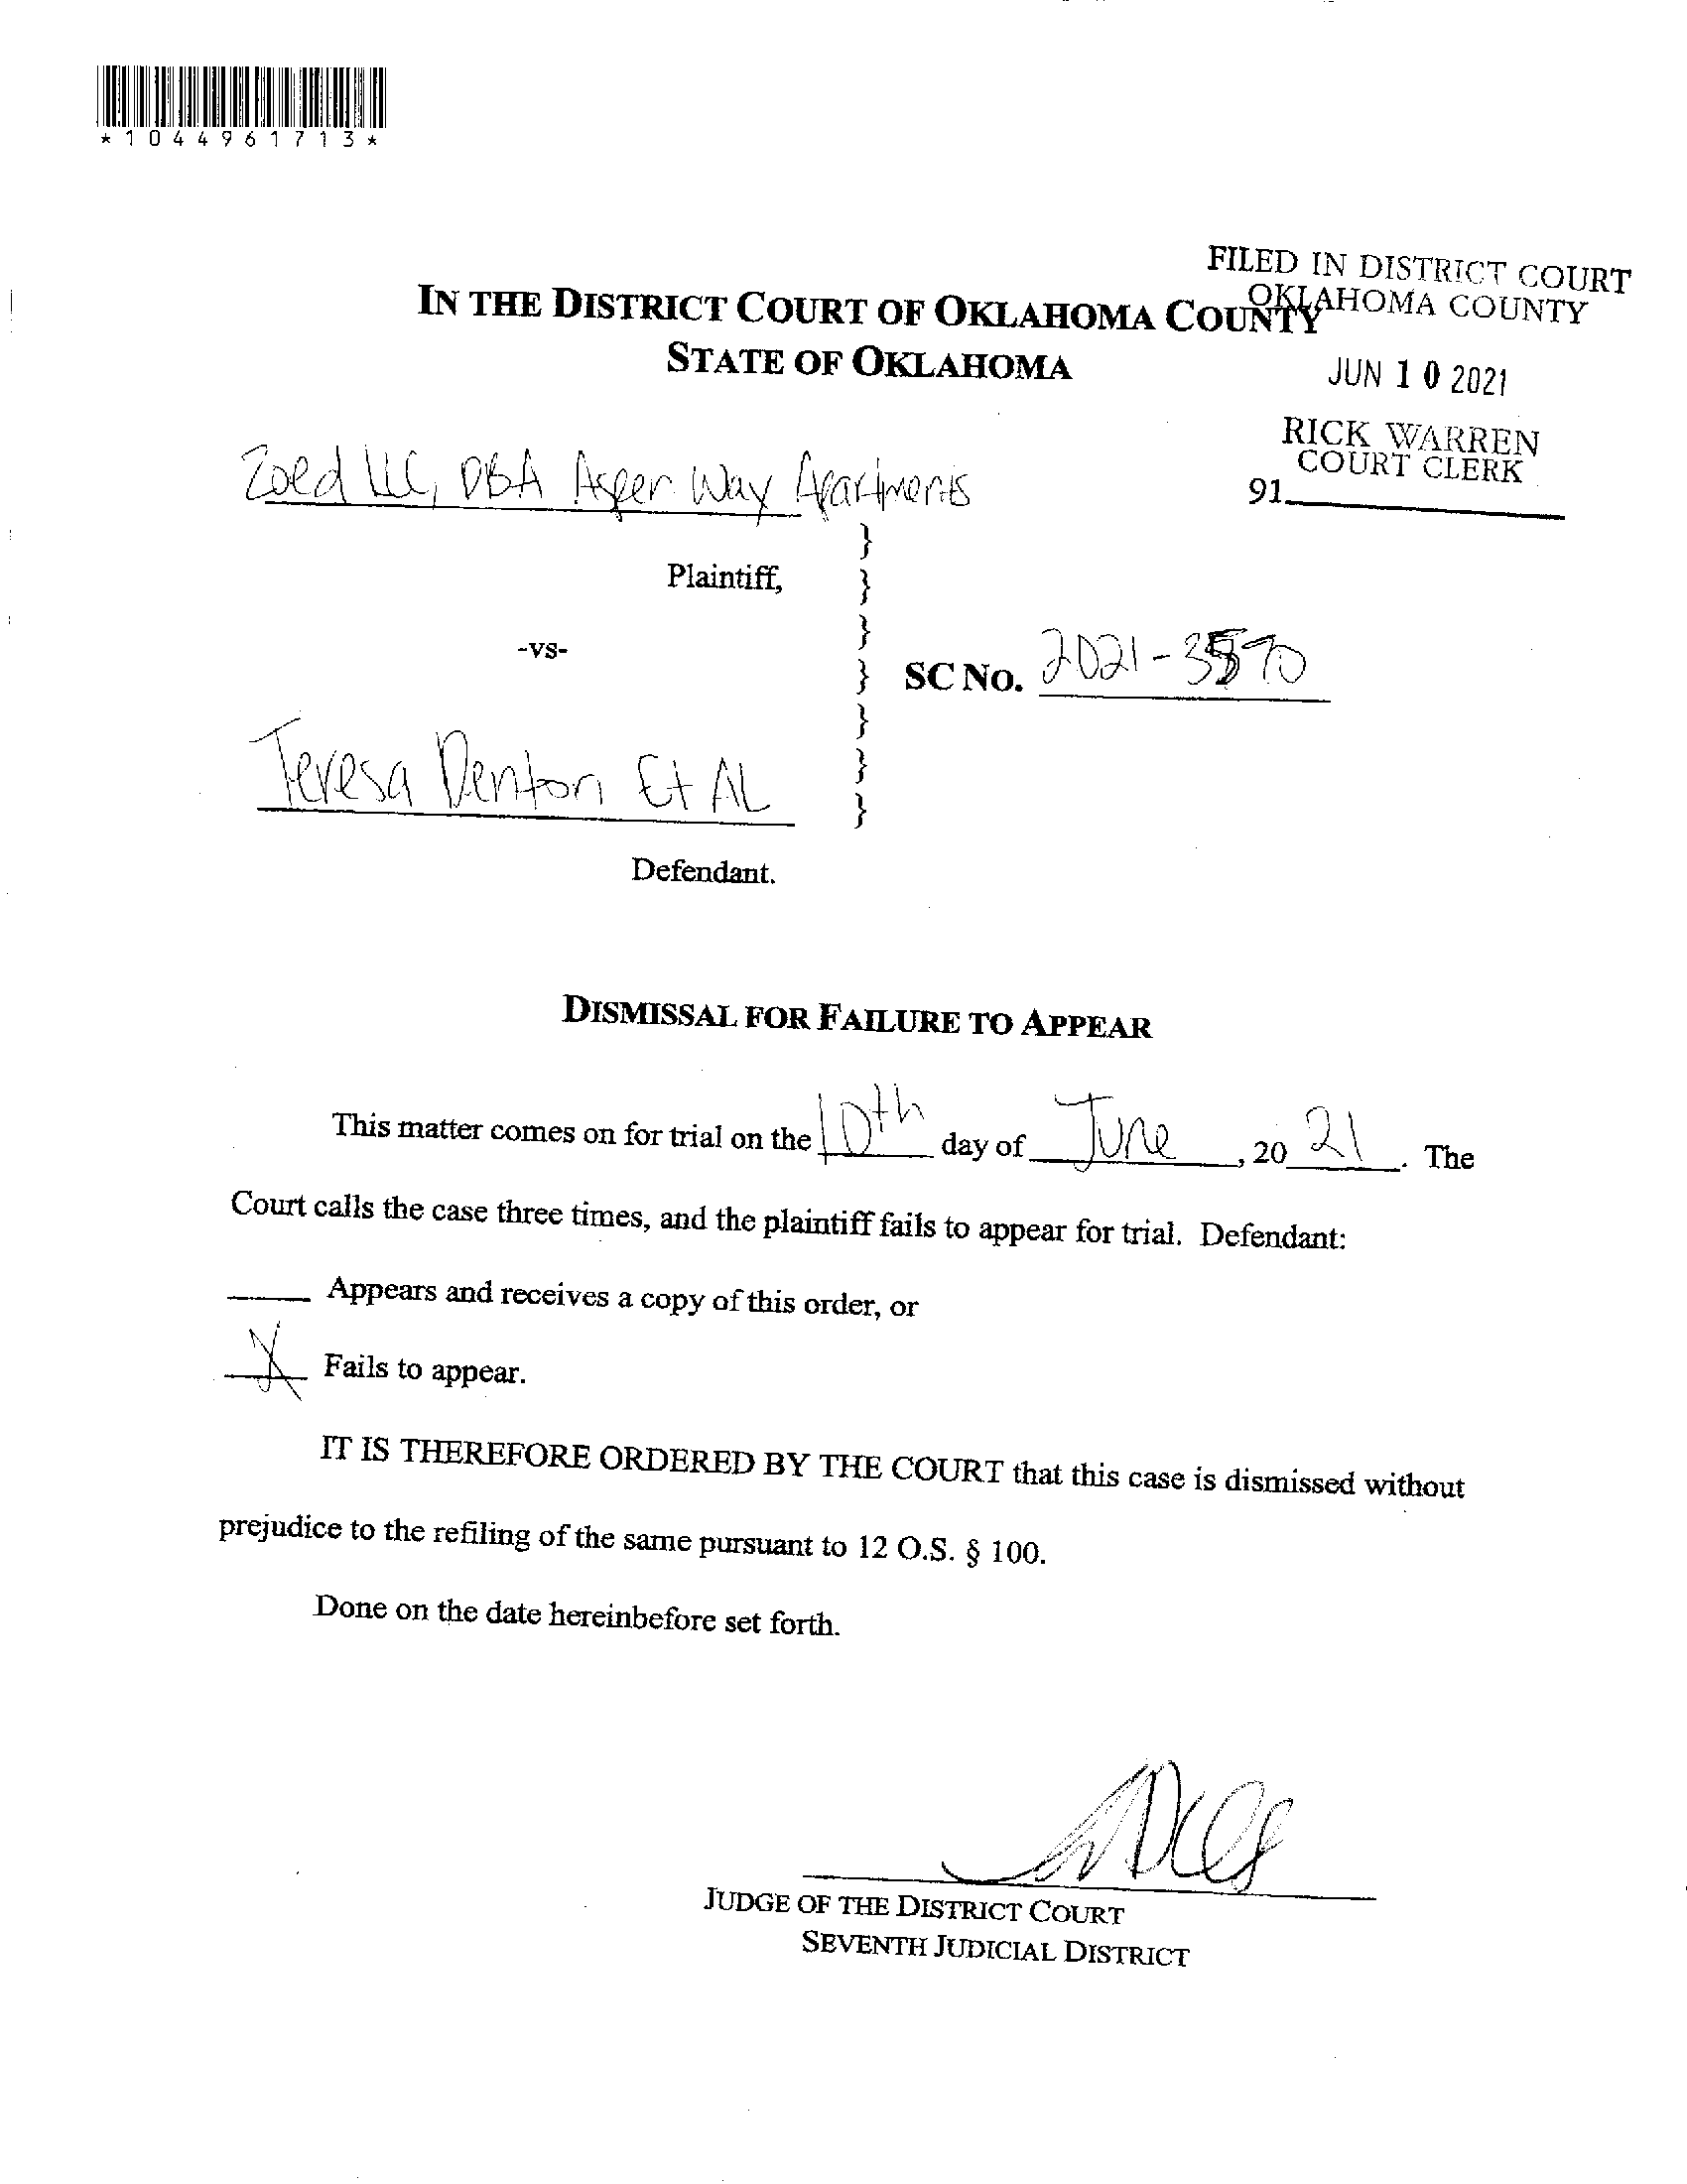 *1044961713*
FILED IN DISTRICT COURT
OKLAHOMA COUNTY
IN THE DISTRICT COURT OF OKLAHOMA COUNTY
STATE OF OKLAHOMA
JUN 10 2021
RICK WARREN
COURT CLERK
91
Zoed LLC, DBA Aspen Way Apartments
}
Plaintiff, }
-vs- }
} SC NO. 2021-3570
}
Teresa Denton Et AL }
}
Defendant.
DISMISSAL FOR FAILURE TO APPEAR
This matter comes on for trial on the 10th day of June, 2021. The
Court calls the case three times, and the plaintiff fails to appear for trial. Defendant:
Appears and receives a copy of this order, or
X Fails to appear.
IT IS THEREFORE ORDERED BY THE COURT that this case is dismissed without
prejudice to the refiling of the same pursuant to 12 O.S. § 100.
Done on the date hereinbefore set forth.
JUDGE OF THE DISTRICT COURT
SEVENTH JUDICIAL DISTRICT